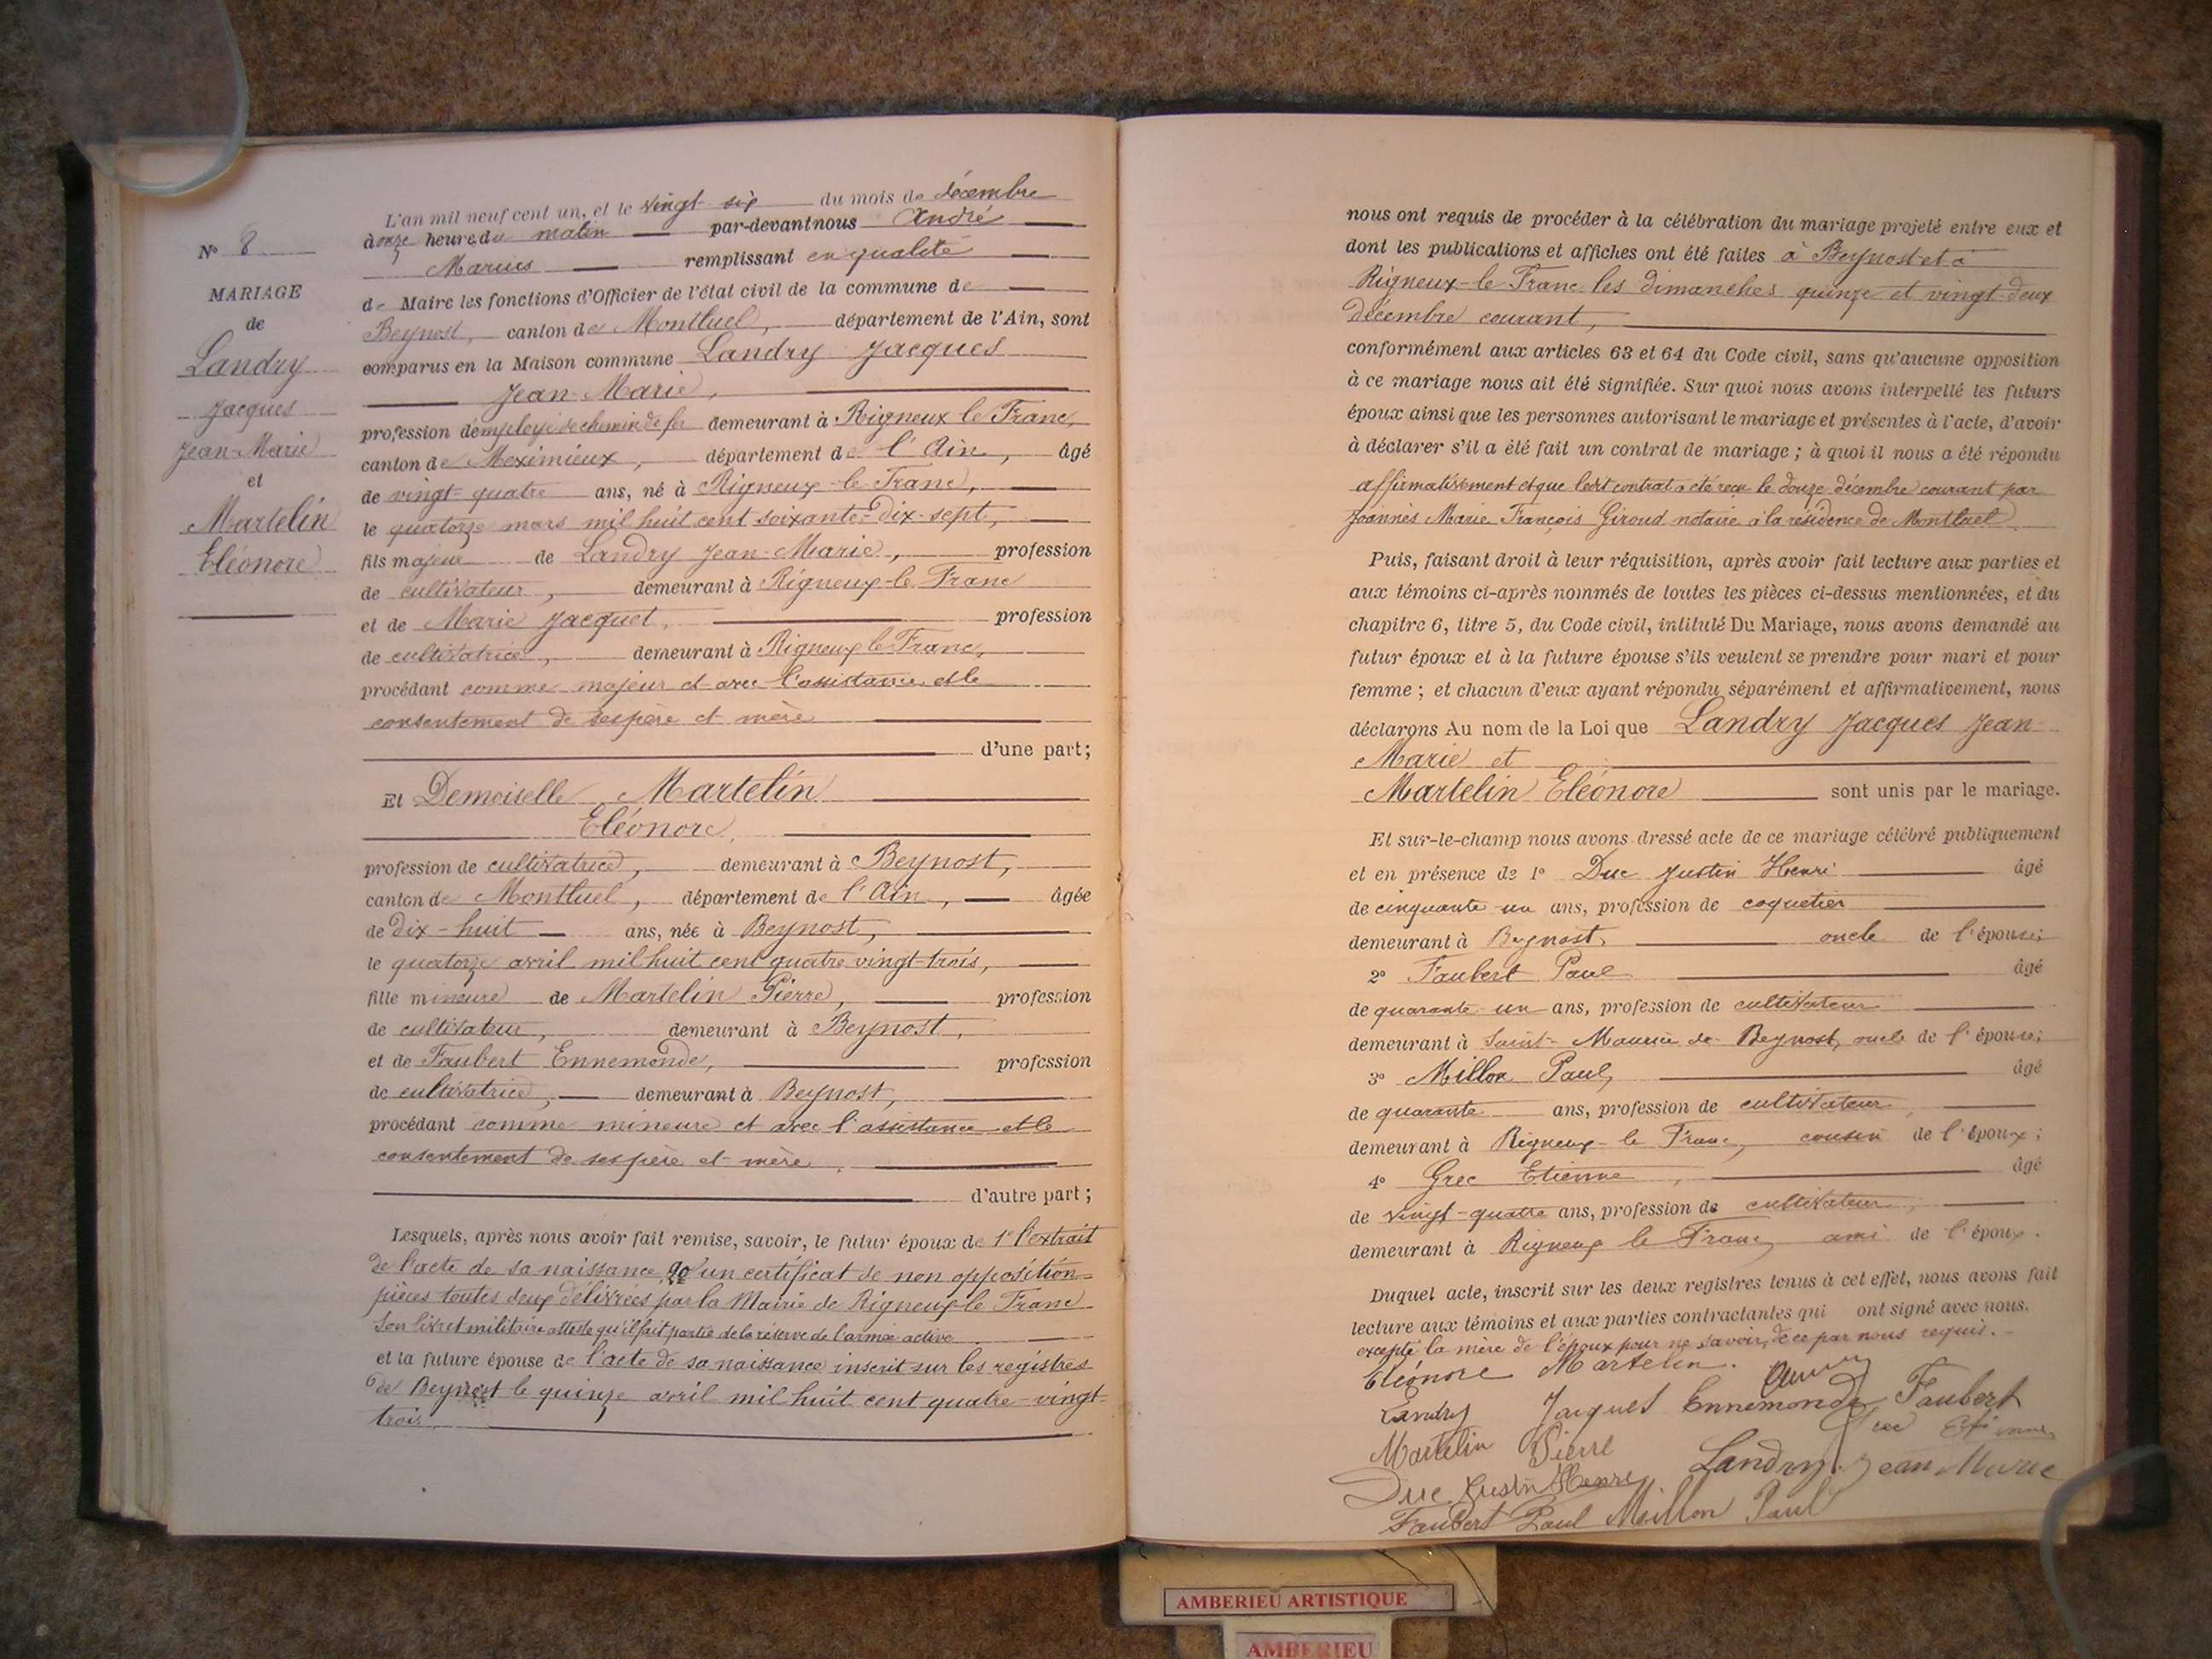 N° 8
MARIAGE
de
Landry
Jacques
Jean-Marie
et
Martelin
Eléonore
L'an mil neuf cent un, et le vingt-six du mois de décembre
à onze heure du matin par-devant nous André
Marius remplissant en qualité
de Maire les fonctions d'Officier de l'état civil de la commune de
Beynost, canton de Montluel, département de l'Ain, sont
comparus en la Maison commune Landry Jacques
Jean-Marie,
profession d'employé de chemin de fer demeurant à Rigneux le Franc,
canton de Meximieux, département de l'Ain, âgé
de vingt-quatre ans, né à Rigneux-le-Franc,
le quatorze mars mil huit cent soixante-dix-sept,
fils majeur de Landry Jean-Marie, profession
de cultivateur, demeurant à Rigneux-le-Franc
et de Marie Jacquet, profession
de cultivatrice, demeurant à Rigneux le Franc,
procédant comme majeur et avec l'assistance et le
consentement de ses père et mère
d'une part;
Et Demoiselle Martelin
Eléonore,
profession de cultivatrice, demeurant à Beynost,
canton de Montluel, département de l'Ain, âgée
de dix-huit ans, née à Beynost,
le quatorze avril mil huit cent quatre vingt-trois,
fille mineure de Martelin Pierre, profession
de cultivateur, demeurant à Beynost,
et de Faubert Ennemonde, profession
de cultivatrice, demeurant à Beynost,
procédant comme mineure et avec l'assistance et le
consentement de ses père et mère,
d'autre part;
Lesquels, après nous avoir fait remise, savoir, le futur époux de 1° l'extrait
de l'acte de sa naissance 2° un certificat de non opposition
pièces toutes deux délivrées par la Mairie de Rigneux-le Franc
Son livret militaire atteste qu'il fait partie de la réserve de l'armée active
et la future épouse de l'acte de sa naissance inscrit sur les registres
de Beynost le quinze avril mil huit cent quatre-vingt
trois
nous ont requis de procéder à la célébration du mariage projeté entre eux et
dont les publications et affiches ont été faites à Beynost et à
Rigneux-le-Franc les dimanches quinze et vingt-deux
décembre courant,
conformément aux articles 63 et 64 du Code civil, sans qu'aucune opposition
à ce mariage nous ait été signifiée. Sur quoi nous avons interpellé les futurs
époux ainsi que les personnes autorisant le mariage et présentes à l'acte, d'avoir
à déclarer s'il a été fait un contrat de mariage; à quoi il nous a été répondu
affirmativement et que ledit contrat a été reçu le douze décembre courant par
Joannès Marie François Giroud notaire à la résidence de Montluel
Puis, faisant droit à leur réquisition, après avoir fait lecture aux parties et
aux témoins ci-après nommés de toutes les pièces ci-dessus mentionnées, et du
chapitre 6, titre 5, du Code civil, intitulé Du Mariage, nous avons demandé au
futur époux et à la future épouse s'ils veulent se prendre pour mari et pour
femme; et chacun d'eux ayant répondu séparément et affirmativement, nous
déclarons Au nom de la Loi que Landry Jacques Jean
Marie et
Martelin Eléonore sont unis par le mariage.
Et sur-le-champ nous avons dressé acte de ce mariage célébré publiquement
et en présence de 1° Duc Justin Henri âgé
de cinquante un ans, profession de coquetier
demeurant à Beynost, oncle de l'épouse;
2° Faubert Paul âgé
de quarante-un ans, profession de cultivateur
demeurant à Saint-Maurice de Beynost, oncle de l'épouse;
3° Millon Paul, âgé
de quarante ans, profession de cultivateur,
demeurant à Rigneux-le Franc, cousin de l'époux;
4° Grec Etienne, âgé
de vingt-quatre ans, profession de cultivateur,
demeurant à Rigneux le Franc, ami de l'époux.
Duquel acte, inscrit sur les deux registres tenus à cet effet, nous avons fait
lecture aux témoins et aux parties contractantes qui ont signé avec nous.
excepté la mère de l'époux pour ne savoir, de ce par nous requis.
Eléonore Martelin.
Landry Jacques Ennemonde Faubert
Martelin Pierre Grec Etienne
Duc Justin Henri Landry Jean Marie
Faubert Paul Millon Paul
AMBERIEU ARTISTIQUE
AMBERIEU